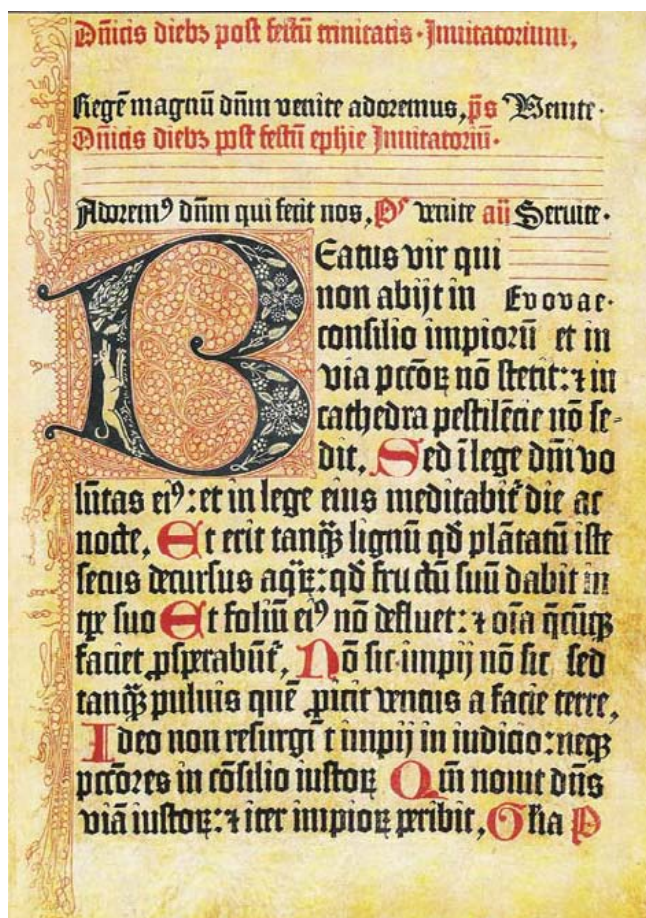 Dñicis diebȝ post festū trinitatis · Inuitatorium,
Regē magnū dñm venite adoremus, p̄s Venite ·
Dñicis diebȝ post festū ephie Inuitatoriū ·
Adorem⁹ dñm qui fecit nos, Pˢ venite añ Seruite ·
Beatus vir qui
non abijt in Evovae ·
consilio impiorū et in
via pccōꝝ nō stetit: ⁊ in
cathedra pestilēcie nō se-
dit, Sed ī lege dñi vo
lūtas ei⁹: et in lege eius meditabit̄ die ac
nocte, Et erit tanqꝫ lignū qd̄ plātatū iste
secus decursus aqꝝ: qd̄ fructū suū dabit in
tꝑe suo Et foliū ei⁹ nō defluet: ⁊ oīa q̄cūqꝫ
faciet ꝓsperabūt̄, Nō sic impij nō sic sed
tanqꝫ puluis quē ꝓicit ventus a facie terre,
Ideo non resurgūt impij in iudicio: neqꝫ
pccōres in cōsilio iustoꝝ Qm̄ nouit dñs
viā iustoꝝ: ⁊ iter impioꝝ peribit, Glīa P